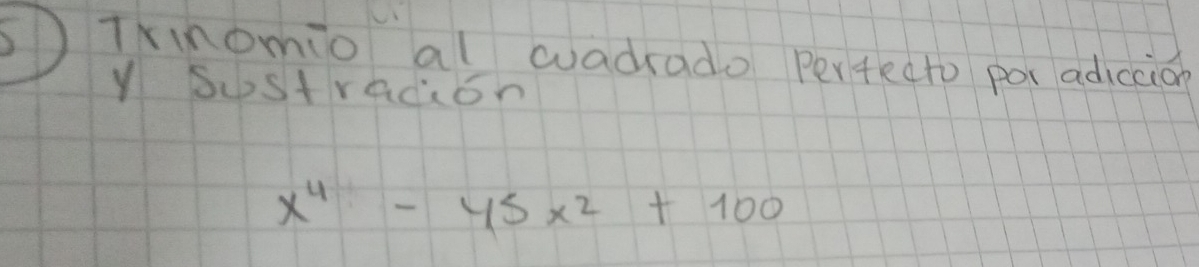 5) Trinomio al cuadrado perfecto por adicción
y sustración
x⁴ - 45x² + 100